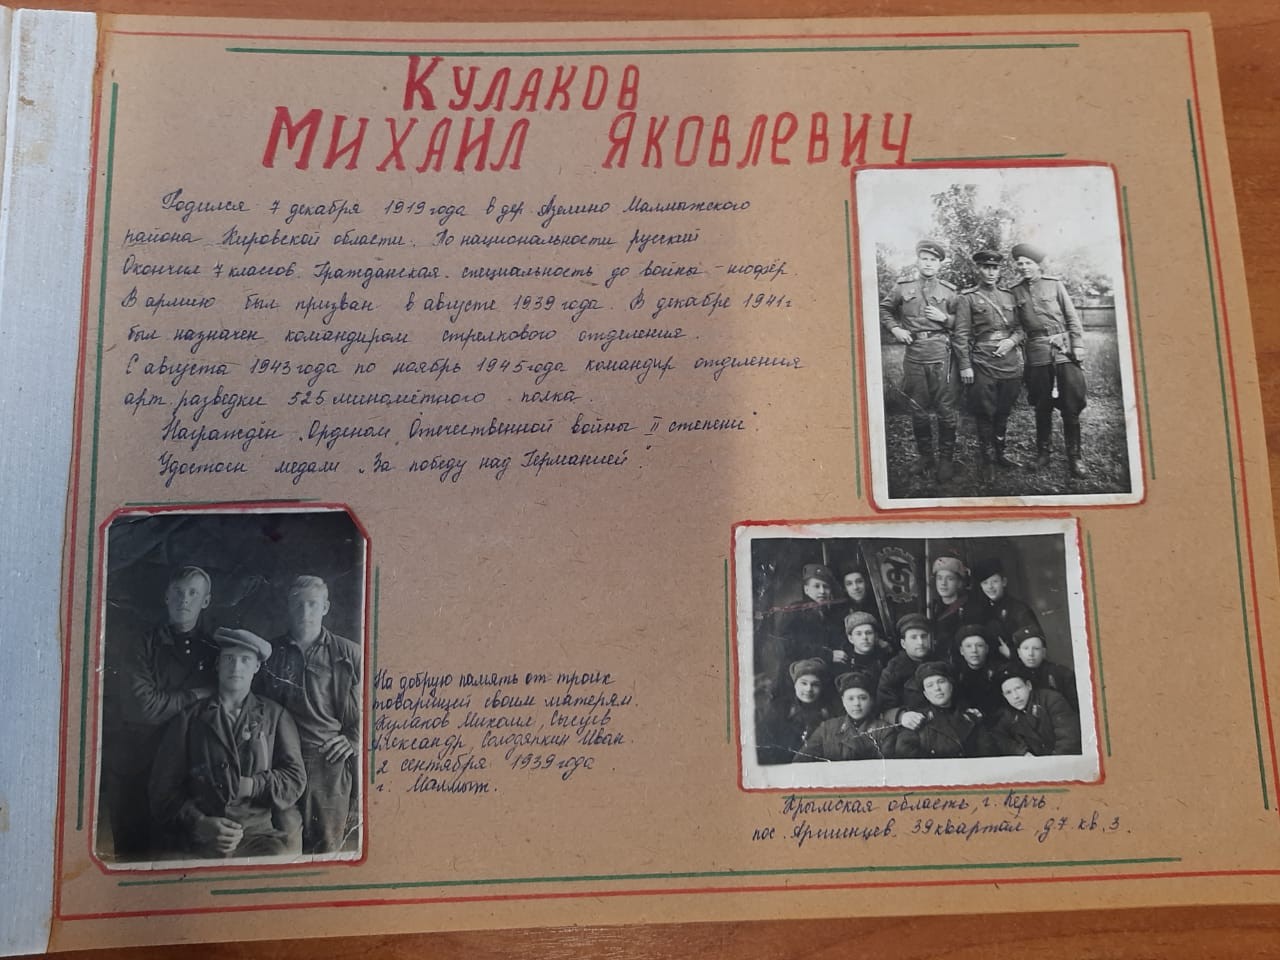 КУЛАКОВ
МИХАИЛ ЯКОВЛЕВИЧ
Родился 7 декабря 1919 года в дер. Азелино Малмыжского
района Кировской области. По национальности русский
Окончил 7 классов. Гражданская специальность до войны - шофёр.
В армию был призван в августе 1939 года. В декабре 1941 г
был назначен командиром стрелкового отделения.
С августа 1943 года по ноябрь 1945 года командир отделения
арт. разведки 525 миномётного полка.
Награждён „Орденом Отечественной войны II степени".
Удостоен медали „За победу над Германией".
На добрую память от троих
товарищей своим матерям.
Кулаков Михаил, Сысуев
Александр, Солодянкин Иван.
2 сентября 1939 года.
г. Малмыж.
Крымская область, г. Керчь.
пос. Аршинцев. 39 квартал, д. 7. кв. 3.